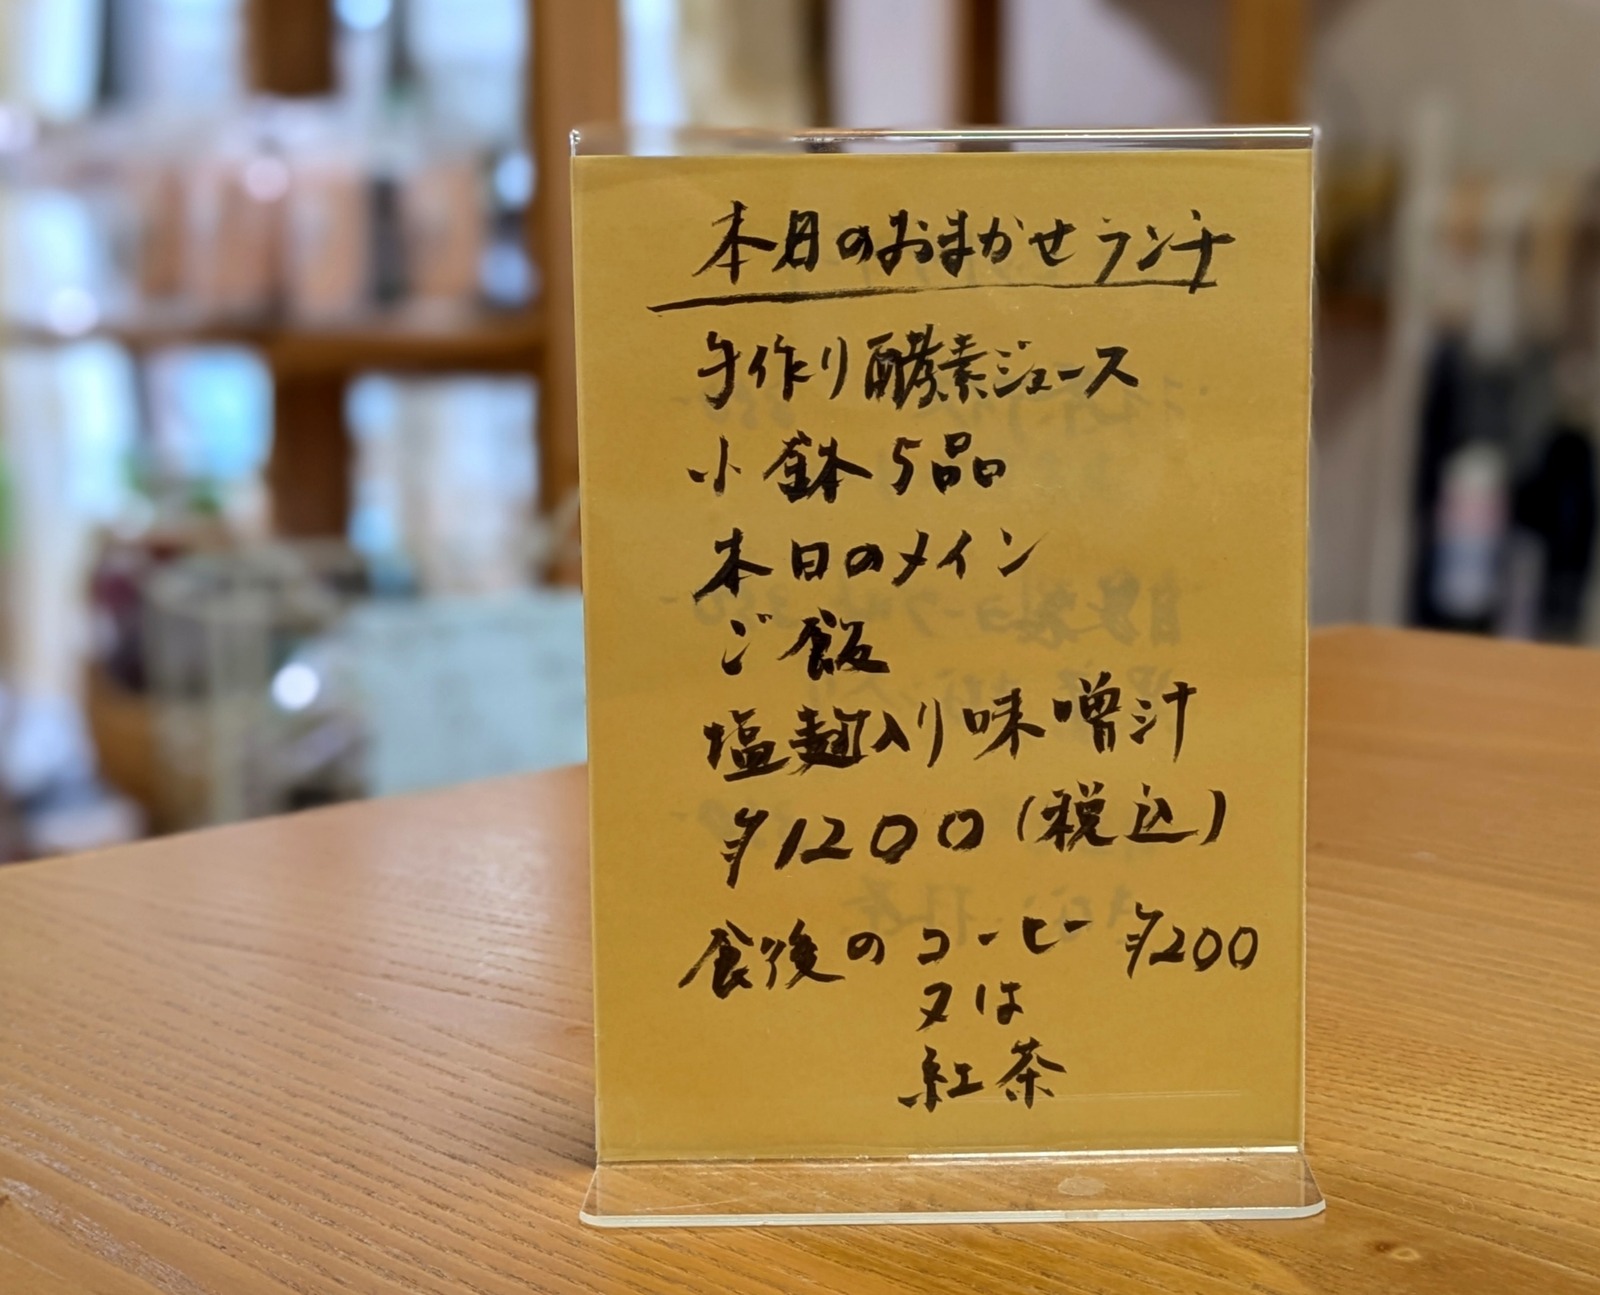 本日のおまかせランチ
手作り酵素ジュース
小鉢5品
本日のメイン
ご飯
塩麹入り味噌汁
¥1200(税込)
食後のコーヒー ¥200
又は
紅茶